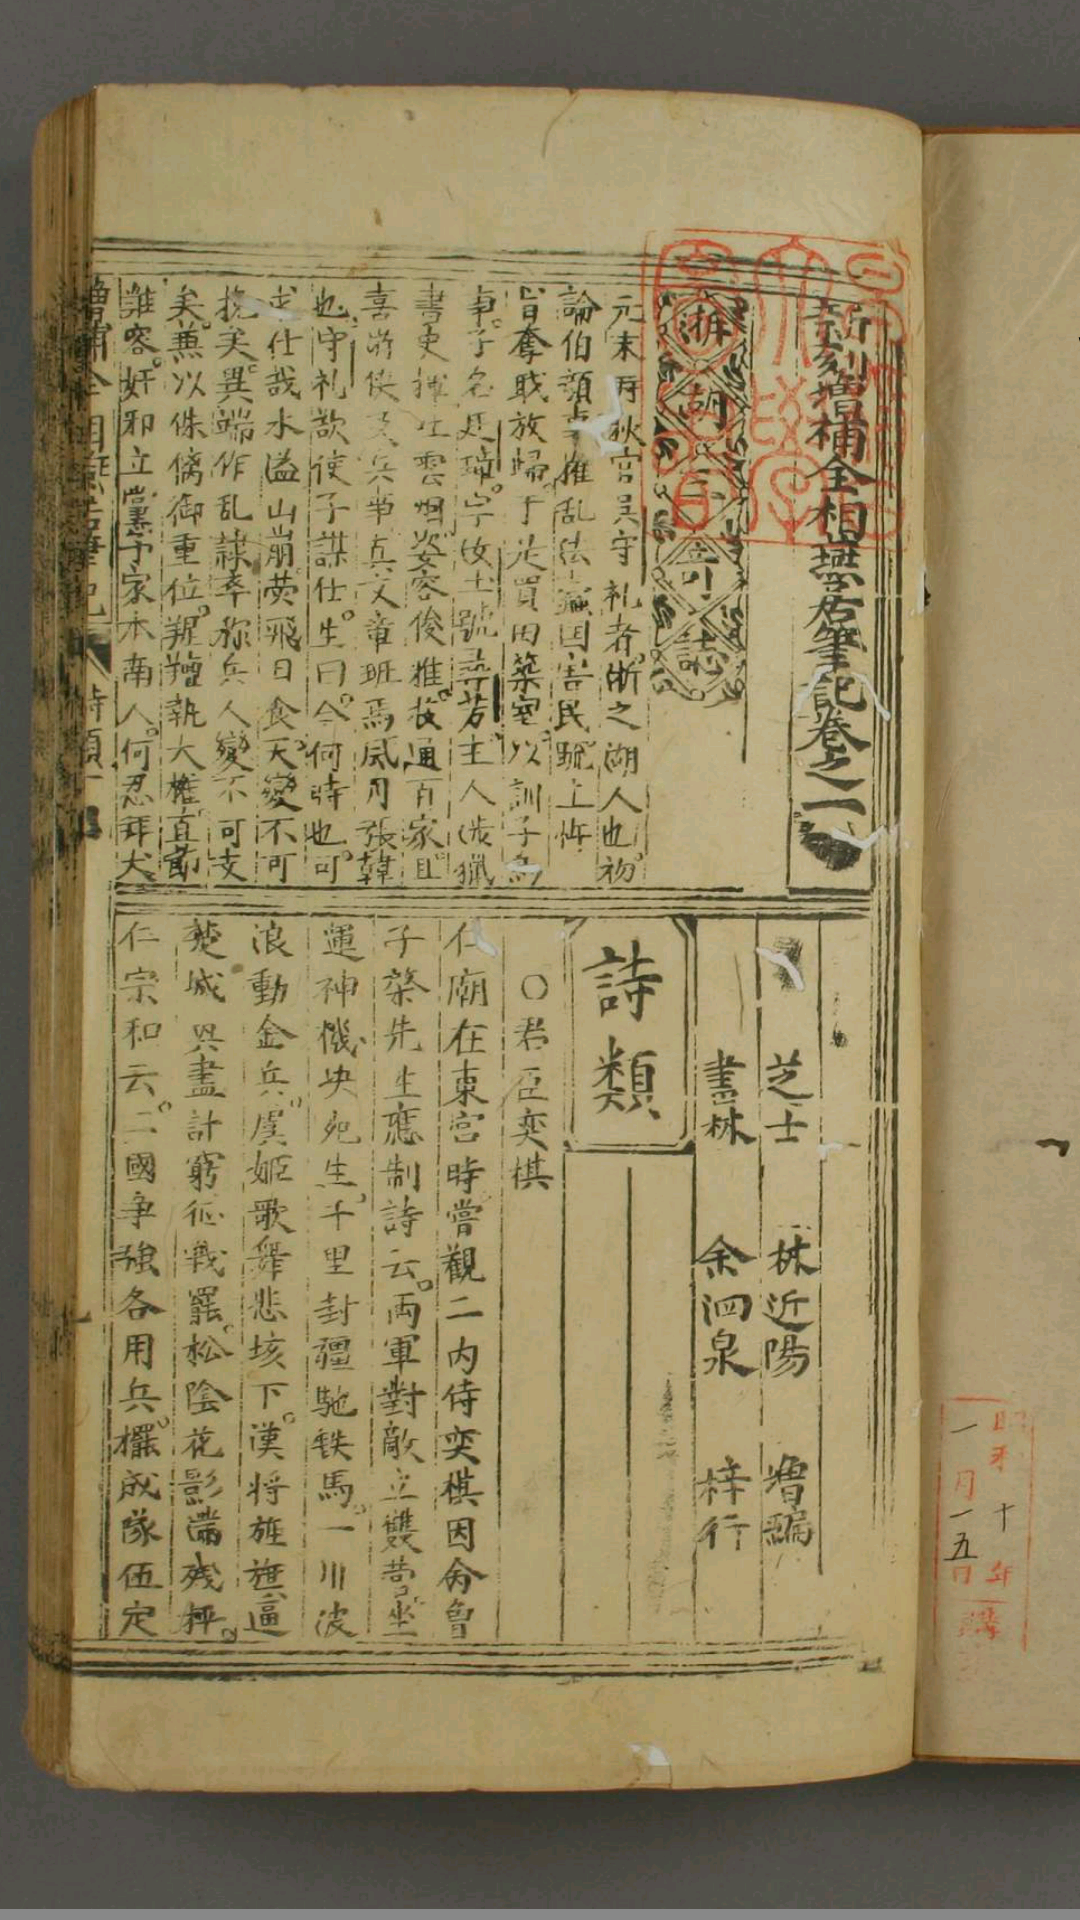 新刻增補全相燕居筆記卷之一
浙湖三奇誌
元末時狄官吳守礼者浙之湖人也初
論伯顏專權乱法蠹国害民䟽上忤
旨奪職放歸于是買田築室以訓子為
事子名廷璋字汝玉號尋芳主人涉獵
書史揮吐雲烟姿容俊雅技通百家且
喜游俠又兵革真文章班馬風月張韓
也守礼欲使子謀仕生曰今何時也可
求仕哉水溢山崩熒飛日食天變不可
挽矣異端作乱隷率称兵人變不可支
矣兼以侏儒御重位羶執大權直節
誰容奸邪立黨予家本南人何忍拜犬
芝士 林近陽 增編
書林 余泗泉 梓行
詩類
○君臣奕棋
仁廟在東宮時嘗觀二內侍奕棋因命曾
子棨先生應制詩云両軍對敵立雙營坐
運神機决死生千里封疆馳鉄馬一川波
浪動金兵虞姬歌舞悲垓下漢将旌旗逼
楚城興盡計窮征戰罷松陰花影滿残枰
仁宗和云二國爭強各用兵擺成隊伍定
增補全相燕居筆記 詩類 一
昭和十年
一月一五日
購